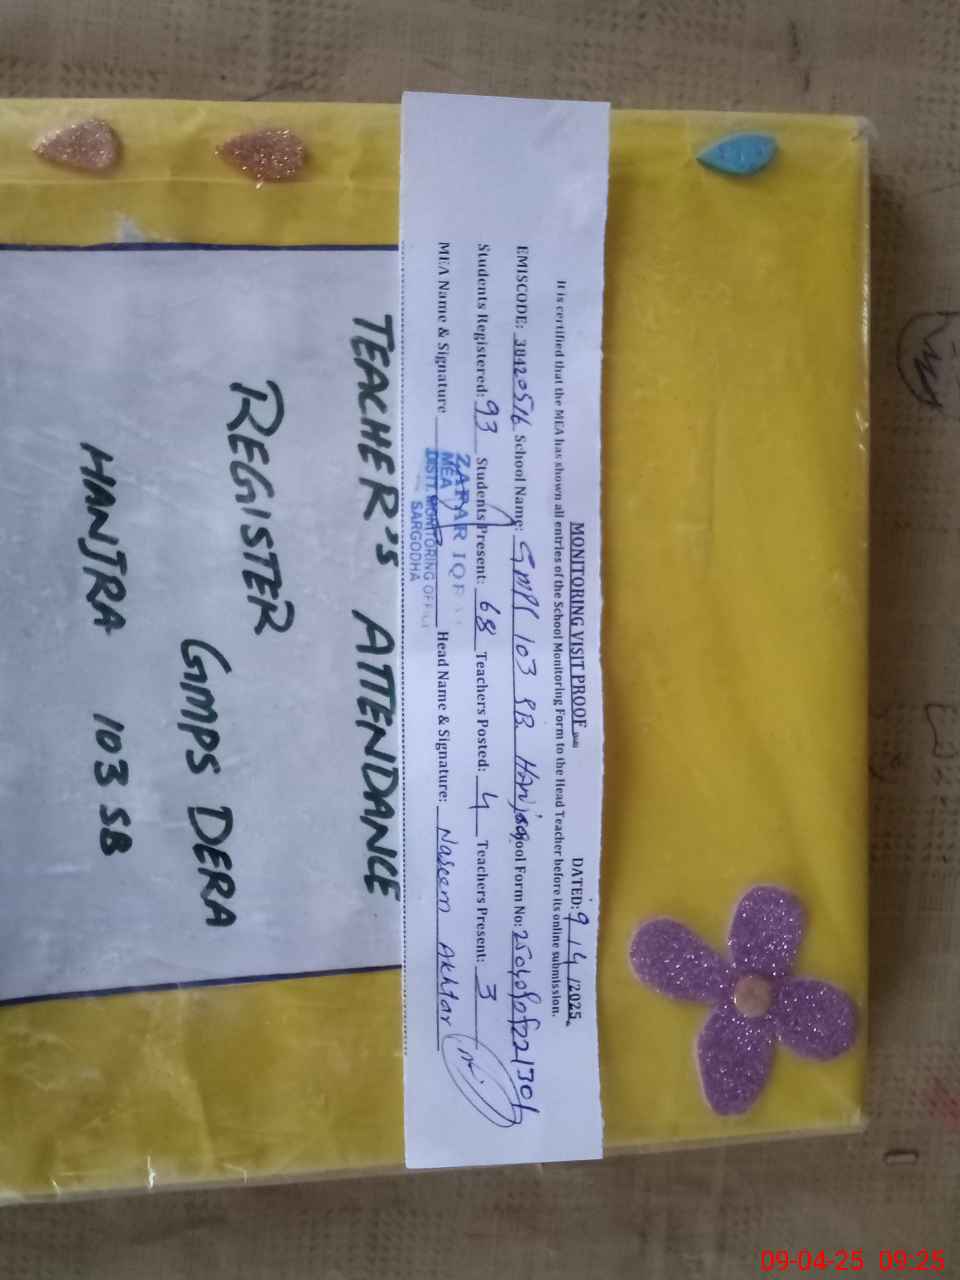 MONITORING VISIT PROOF DATED: 9/4/2025
It is certified that the MEA has shown all entries of the School Monitoring Form to the Head Teacher before its online submission.
EMISCODE: 38420516 School Name: GMPS 103 SB Hanjra School Form No:
Students Registered: 93 Students Present: 68 Teachers Posted: 4 Teachers Present: 3
MEA Name & Signature Head Name & Signature: Naseem Akhtar
ZAFAR IQB
MEA
DISTT. MONITORING OFFICE
SARGODHA
TEACHER'S ATTENDANCE
REGISTER
GMPS DERA
HANJRA 103 SB
09-04-25 09:25